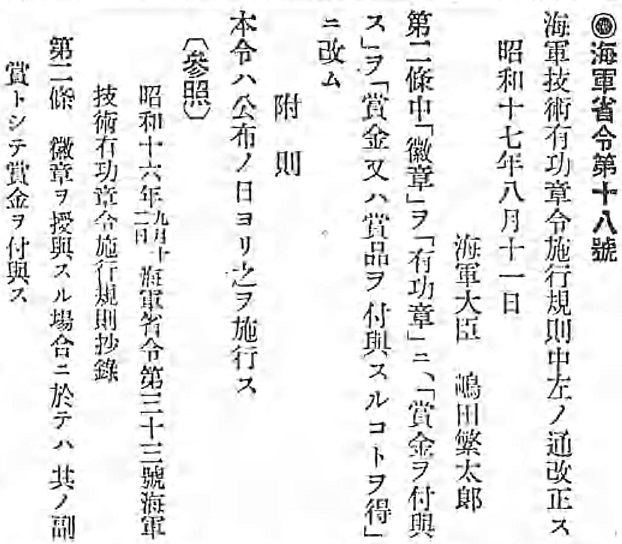 ◉海軍省令第十八號
海軍技術有功章令施行規則中左ノ通改正ス
昭和十七年八月十一日
海軍大臣　嶋田繁太郎
第二條中「徽章」ヲ「有功章」ニ、「賞金ヲ付與
ス」ヲ「賞金又ハ賞品ヲ付與スルコトヲ得」
ニ改ム
附　則
本令ハ公布ノ日ヨリ之ヲ施行ス
〔參照〕
昭和十六年九月十二日海軍省令第三十三號海軍
技術有功章令施行規則抄錄
第二條　徽章ヲ授與スル場合ニ於テハ其ノ副
賞トシテ賞金ヲ付與ス